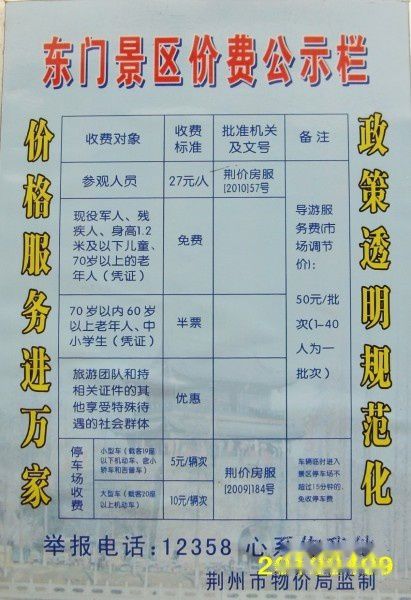 东门景区价费公示栏
价格服务进万家
政策透明规范化
收费对象
收费
标准
批准机关
及文号
备注
参观人员
27元/人
荆价房服
[2010]57号
现役军人、残
疾人、身高1.2
米及以下儿童、
70岁以上的老
年人（凭证）
免费
导游服
务费(市
场调节
价):
50元/批
次(1-40
人为一
批次)
70岁以内60岁
以上老年人、中
小学生（凭证）
半票
旅游团队和持
相关证件的其
他享受特殊待
遇的社会群体
优惠
停车场收费
小型车（载客19座
以下机动车、含小
轿车和吉普车）
5元/辆次
荆价房服
[2009]184号
车辆临时进入
景区停车场不
超过15分钟的,
免收停车费
大型车（载客20座
以上机动车）
10元/辆次
举报电话:12358 心系
荆州市物价局监制